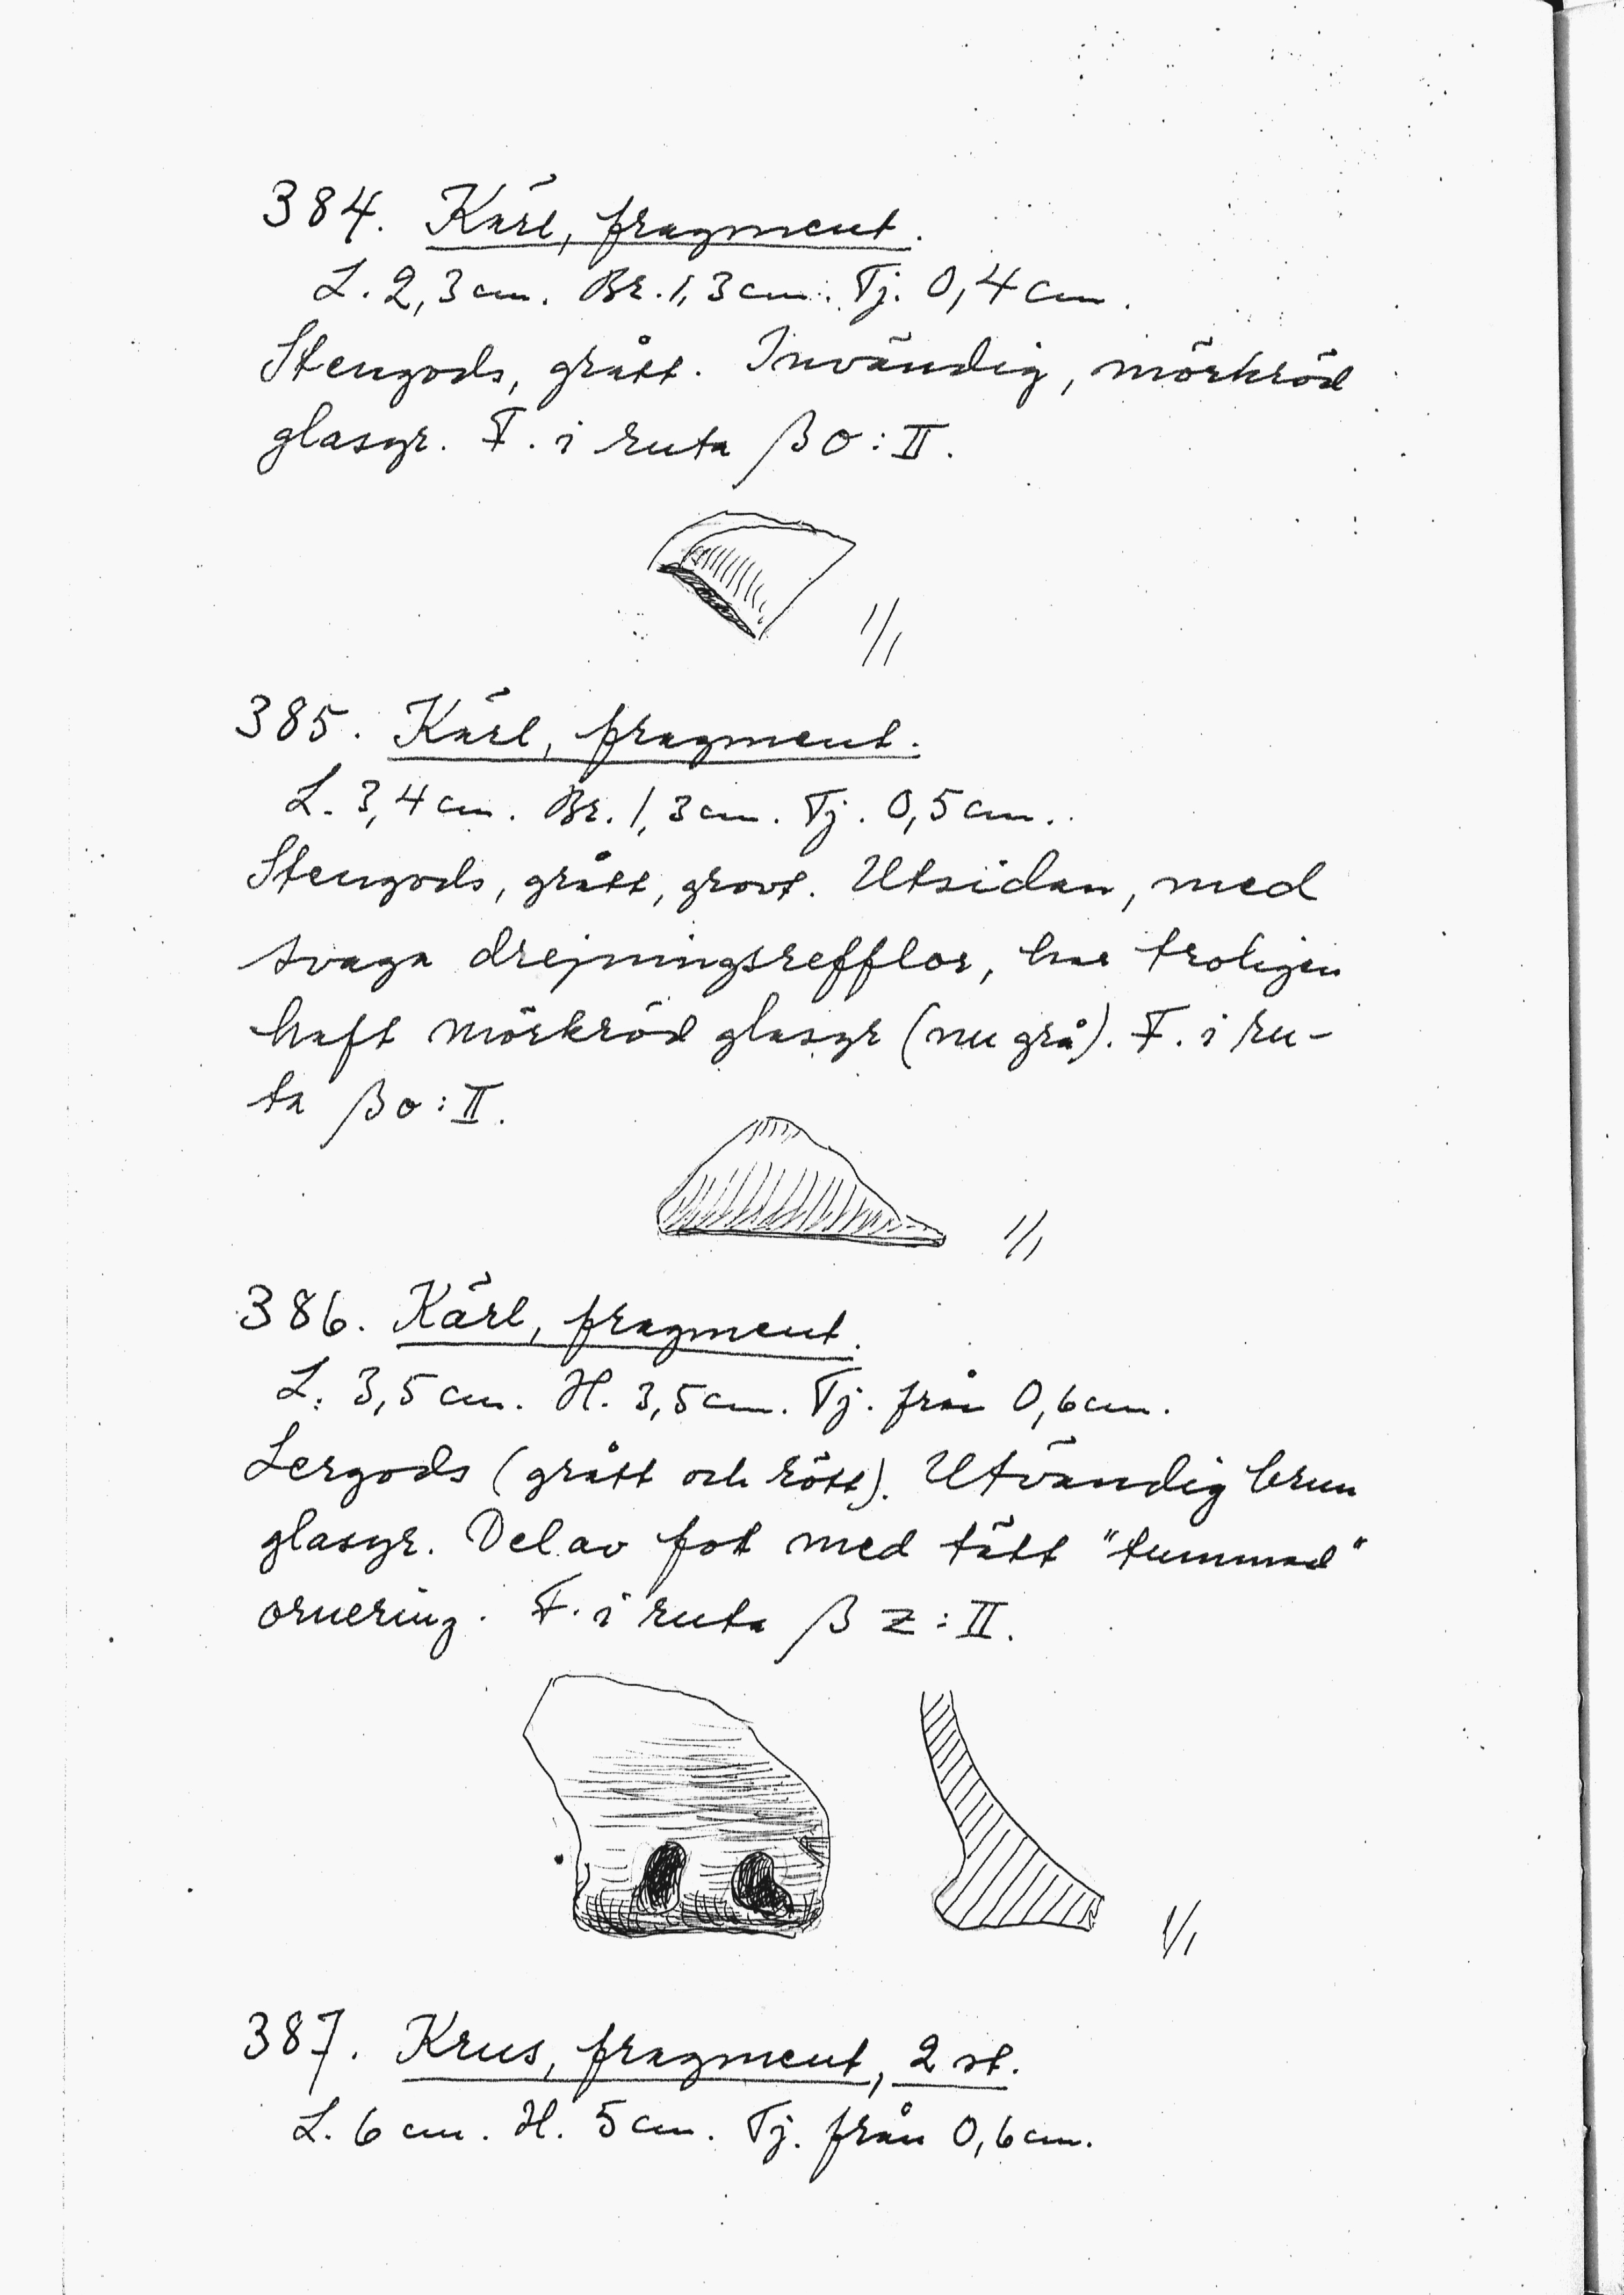 384. Kärl, fragment.
L. 2,3 cm. Br. 1,3 cm. Tj. 0,4 cm.
Stengods, grått. Invändig, mörkröd
glasyr. F. i ruta βo:II.
1/1
385. Kärl, fragment.
L. 3,4 cm. Br. 1,3 cm. Tj. 0,5 cm.
Stengods, grått, grovt. Utsidan, med
svaga drejningsrefflor, har troligen
haft mörkröd glasyr (nu grå). F. i ru-
ta βo:II.
1/1
386. Kärl, fragment.
L. 3,5 cm. H. 3,5 cm. Tj. från 0,6 cm.
Lergods (grått och rött). Utvändig brun
glasyr. Del av fot med tätt "tummad"
ornering. F. i ruta β z:II.
1/1
387. Krus, fragment, 2 st.
L. 6 cm. H. 5 cm. Tj. från 0,6 cm.